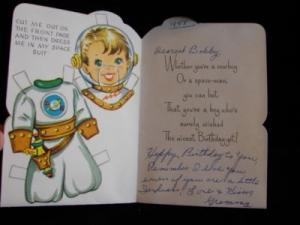 CUT ME OUT ON
THE FRONT PAGE
AND THEN DRESS
ME IN MY SPACE
SUIT
Dearest Bobby,
Whether you're a cowboy
Or a space-man,
you can bet
That you're a boy who's
merely wished
The nicest Birthday yet!
Happy Birthday to You,
Remember I love you
even if you are a little
Love & Kisses